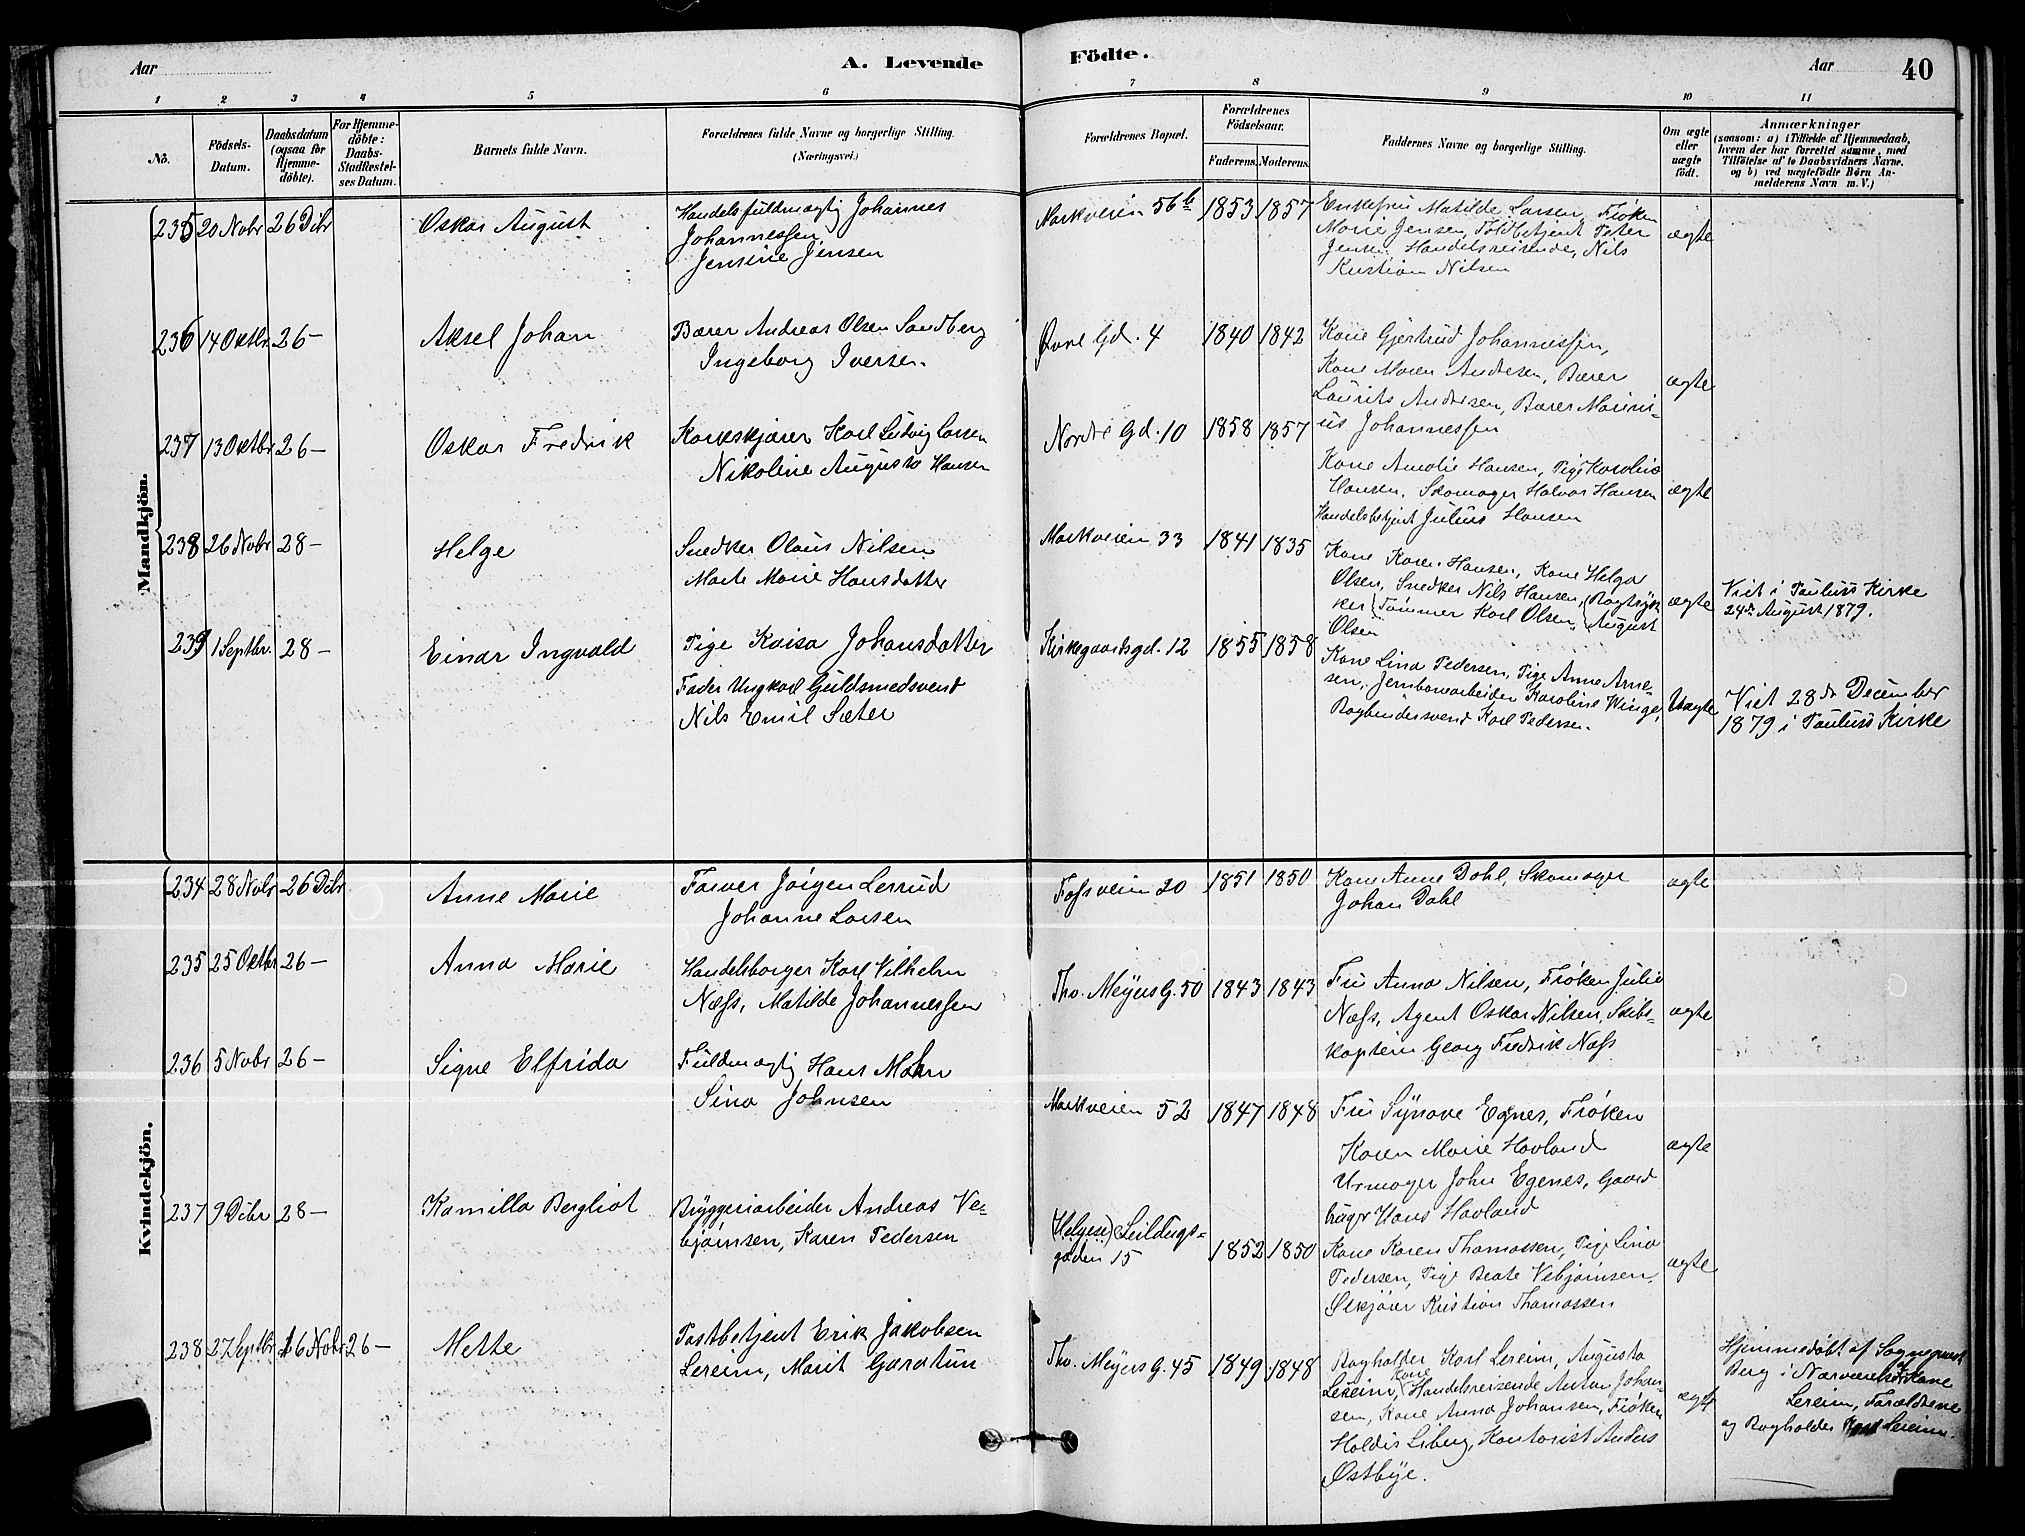 Aar
A. Levende
Födte.
Aar
40
1 2 3 4 5 6 7 8 9 10 11
No.
Födsels-Datum.
Daabsdatum (ogsaa for Hjemme-döbte).
For Hjemme-döbte: Daabs-Stadfæstel-ses Datum.
Barnets fulde Navn.
Forældrenes fulde Navne og borgerlige Stilling.
(Næringsvei.)
Forældrenes Bopæl.
Forældrenes Födselsaar.
Faderens. Moderens.
Faddernes Navne og borgerlige Stilling.
Om ægte eller uægte födt.
Anmærkninger
(saasom: a) i Tilfælde af Hjemmedaab, hvem der har forrettet samme, med Tilföielse af to Daabsvidners Navne. og b) ved uægtefödte Börn An-melderens Navn m. V.)
Mandkjön.
235 20 Nobr 26 Dcbr Oskar August
Handelsfuldmægtig Johannes
Johannessen
Jensine Jensen
Markveien 56b 1853 1857
Enkefru Matilde Larsen, Frøken
Marie Jensen, Toldbetjent Peter
Jensen, Handelsreisende, Nils
Kristian Nilsen
ægte
236 14 Oktbr. 26 – Aksel Johan
Bærer Andreas Olsen Sandberg
Ingeborg Iversen.
Øvre Gd. 4 1840 1842
Kone Gjertrud Johannessen,
Kone Maren Andersen, Bærer
Laurits Andersen, Bærer Marini-
us Johannessen
ægte
237 13 Oktbr 26 – Oskar Fredrik
Korkskjærer Karl Ludvig Larsen
Nikoline Augusta Hansen
Nordre Gd. 10 1858 1857
Kone Amalie Hansen, Pige Karoline
Hansen, Skomager Halvor Hansen
Handelsbetjent Julius Hansen
ægte
238 26 Nobr 28 – Helge
Snedker Olaus Nilsen
Marte Marie Hansdatter
Markveien 33 1841 1835
Kone Karen Hansen, Kone Helga
Olsen, Snedker Nils Hansen, Bogtryk-
ker Tømmer Karl Olsen, August
Olsen
ægte
Viet i Paulus Kirke
24de August 1879.
239 1 Septbr. 28 – Einar Ingvald
Pige Kaisa Johansdatter
Fader Ungkarl Guldsmedsvend
Nils Emil Sæter
Kirkegaardsgd. 12 1855 1858
Kone Lina Pedersen, Pige Anne Arne-
sen, Jernbanearbeider Karoline Winge,
Bogbindersvend Karl Pedersen.
Uægte
Viet 28de December
1879 i Paulus Kirke
Kvindekjön.
234 28 Nobr 26 Dcbr Anne Marie
Farver Jørgen Lerrud
Johanne Larsen
Fossveien 20 1851 1850
Kone Anne Dahl, Skomager
Johan Dahl
ægte
235 25 Oktbr 26 – Anna Marie
Handelsborger Karl Vilhelm
Næss, Matilde Johannessen
Tho. Meyers G. 50 1843 1843
Fru Anna Nilsen, Frøken Julie
Næss, Agent Oskar Nilsen, Skibs-
kaptein Georg Fredrik Næss
ægte
236 5 Nobr 26 – Signe Elfrida
Fuldmægtig Hans Mohn
Sina Johnsen
Markveien 52 1847 1848
Fru Synøve Egnes, Frøken
Karen Marie Havland
Urmager John Egenes, Gaard
bruger Hans Havland
ægte
237 9 Dcbr 28 – Kamilla Bergliot
Bryggeriarbeider Andreas Ve-
bjørnsen, Karen Pedersen
(Helgesen) Seildugs-
gaden 15 1852 1850
Kone Karen Thomassen, Pige Lina
Pedersen, Pige Beate Vebjørnsen,
Ølkjører Kristian Thomassen
ægte
238 27 Septbr. 16 Nobr 26 – Mette
Postbetjent Erik Jakobsen
Lereim, Marit Garatun
Tho. Meyers G. 45 1849 1848
Bogholder Karl Lereim, Augusta
Lereim, Kone Handelsreisende Anton Johan-
sen, Kone Anna Johansen, Frøken
Haldis Liberg, Kontorist Anders
Østbye.
ægte
Hjemmedøbt af Sogneprest
Berg i Nærværelse af Kone
Lereim, Forældrene
og Bogholder Karl Lereim.